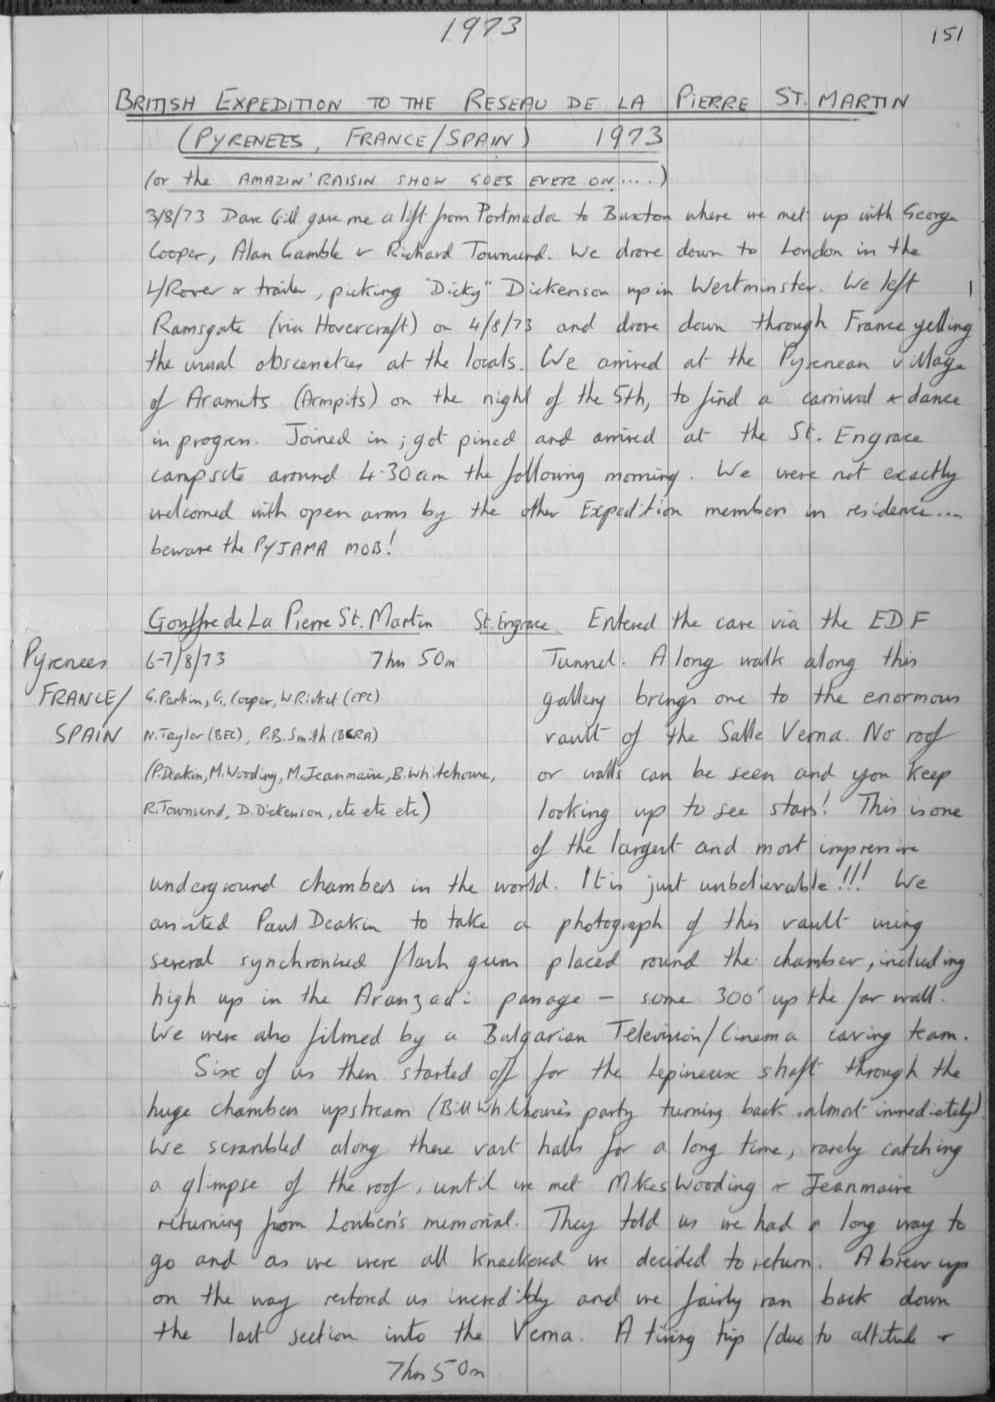 1973
151
BRITISH EXPEDITION TO THE RESEAU DE LA PIERRE ST. MARTIN
(PYRENEES, FRANCE/SPAIN) 1973
(or the AMAZIN' RAISIN SHOW GOES EVER ON....)
3/8/73 Dave Gill gave me a lift from Portmadoc to Buxton where we met up with George
Cooper, Alan Gamble & Richard Townsend. We drove down to London in the
L/Rover & trailer, picking "Dicky" Dickenson up in Westminster. We left
Ramsgate (via Hovercraft) on 4/8/73 and drove down through France yelling
the usual obscenities at the locals. We arrived at the Pyrenean village
of Aramits (Armpits) on the night of the 5th, to find a carnival & dance
in progress. Joined in; got pissed and arrived at the St. Engrace
campsite around 4.30am the following morning. We were not exactly
welcomed with open arms by the other Expedition members in residence....
beware the PYJAMA MOB!
Gouffre de La Pierre St. Martin St. Engrace Entered the cave via the EDF
Pyrenees 6-7/8/73 7hrs 50m Tunnel. A long walk along this
FRANCE/ G. Parkin, G. Cooper, W. (CPC) gallery brings one to the enormous
SPAIN N. Taylor (BEC), P.B. Smith (BCRA) vault of the Salle Verna. No roof
(P. Deakin, M. Wooding, M. Jeanmaire, B. Whitehouse, or walls can be seen and you keep
R. Townsend, D. Dickenson, etc etc etc) looking up to see stars! This is one
of the largest and most impressive
underground chambers in the world. It is just unbelievable!!! We
assisted Paul Deakin to take a photograph of this vault using
several synchronised flash guns placed round the chamber, including
high up in the Aranzadi passage - some 300' up the far wall.
We were also filmed by a Bulgarian Television/Cinema caving team.
Six of us then started off for the Lepineux shaft through the
huge chambers upstream (Bill Whitehouse's party turning back almost immediately)
We scrambled along these vast halls for a long time, rarely catching
a glimpse of the roof, until we met Mikes Wooding & Jeanmaire
returning from Louben's memorial. They told us we had a long way to
go and as we were all knackered we decided to return. A brew up
on the way restored us incredibly and we fairly ran back down
the last section into the Verna. A tiring trip (due to altitude &
7hrs 50m